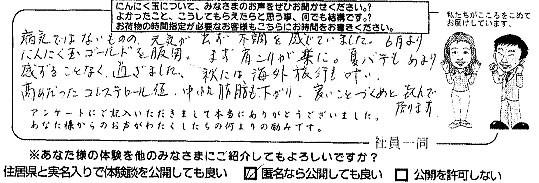 にんにく玉について、みなさまのお声をぜひお聞かせください。
よかったこと、こうしてもらえたらと思う事、何でも結構です?
お荷物の時間指定が必要なお客様もこちらにお時間をお書きください。
私たちがこころをこめて
お届けしています。
病気ではないものの、元気が出ず不調を感じていました。6月より
にんにく玉ゴールドを服用。まず肩こりが楽に。夏バテもあまり
感することなく、過ぎました。秋には海外旅行も叶い、
高めだったコレステロール値、中性脂肪も下がり、良いことづくめと喜んで
居ります。
アンケートにご記入いただきまして本当にありがとうございました。
あなた様からのお声がわたくしたちの何よりの励みです。
社員一同
※あなた様の体験を他のみなさまにご紹介してもよろしいですか?
住居県と実名入りで体験談を公開しても良い 匿名なら公開しても良い 公開を許可しない